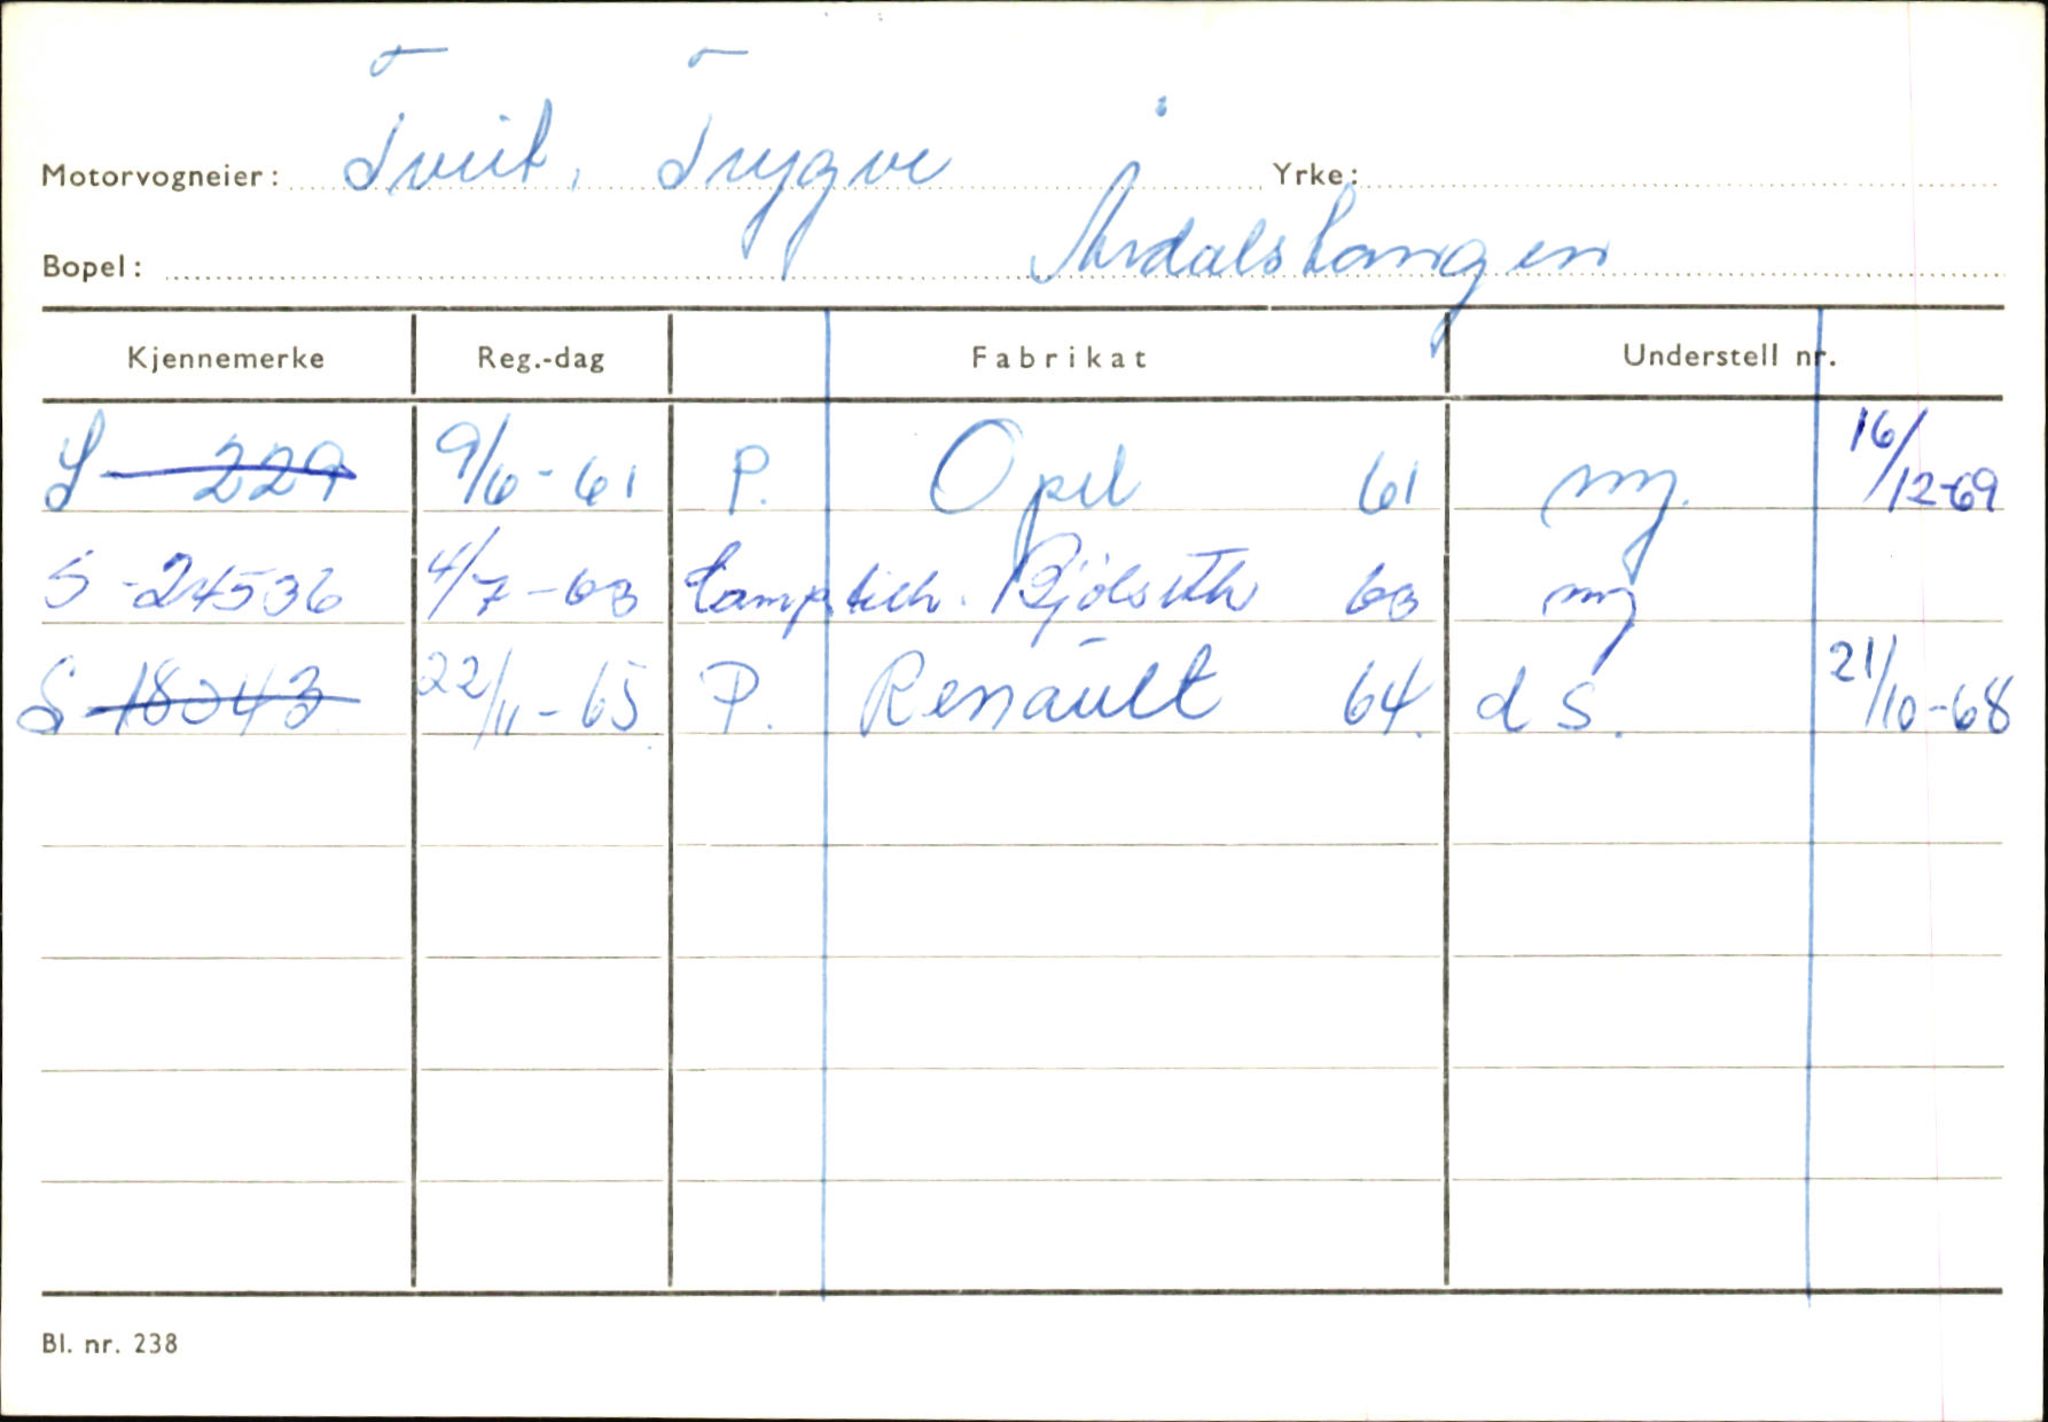 Motorvogneier: Tveit, Trygve Yrke:
Bopel: Årdalstangen
Kjennemerke Reg.-dag Fabrikat Understell nr.
S 229 9/6-61 P. Opel 61 ny. 16/12-69
S-24536 4/7-63 Bjølseth 63 ny
S 18343 22/11-65 P. Renault 64. d S. 21/10-68
Bl. nr. 238